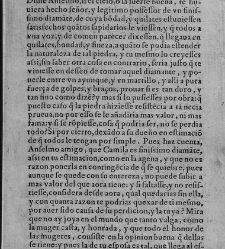 Dime Anselmo, si el cielo, o la suerte buena, te hu-
uiera hecho señor, y legitimo possessor de vn finis-
simo diamáte, de cuya bódad, y quilates estuuiessen
satisfechos quátos lapidarios le viessen, y q̃ todos a
vna voz, y de comun parecer dixessen, q̃ llegaua en
quilates, bondad, y fineza, a quáto se podia estender
la naturaleza de tal piedra, y tu mesmo lo creyesses
assi, sin saber otra cosa en contrario, seria justo q̃ te
viniesse en desseo de tomar aquel diamante, y po-
nerle entre vn ayunque, y vn martillo, y alli a pura
fuerça de golpes, y braços, prouar si es tan duro, y
tan fino como dizẽ? y mas si lo pusiesses por obra: q̃
puesto caso q̃ la piedra hiziesse resistẽcia a tã necia
prueua, no por esso se le añadiria mas valor, ni mas
fama: y si se rõpiesse, cosa q̃ podria ser, no se perdia
todo? Si por cierto, dexádo a su dueño en estimació
de q̃ todos le tengan por simple. Pues haz cuenta,
Anselmo amigo, que Camila es finissimo diamáte,
assi en tu estimacion, como en la agena, y que no es
razon ponerla en contingẽcia de q̃ se quiebre, pues
aunque se quede con su entereza, no puede subir a
mas valor del que aora tiene: y si faltasse, y no resi-
stiesse, considera desde aora, qual quedarias sin ella,
y con quanta razon te podrias quexar de ti mesmo,
por auer sido causa de su perdicion, y la tuya? Mira
que no ay joya en el mundo que tanto valga, como
la muger casta, y honrada, y que todo el honor de
las mugeres, consiste en la opinion buena q̃ dellas
se tiene: y pues la de tu esposa es tal, que llega al es